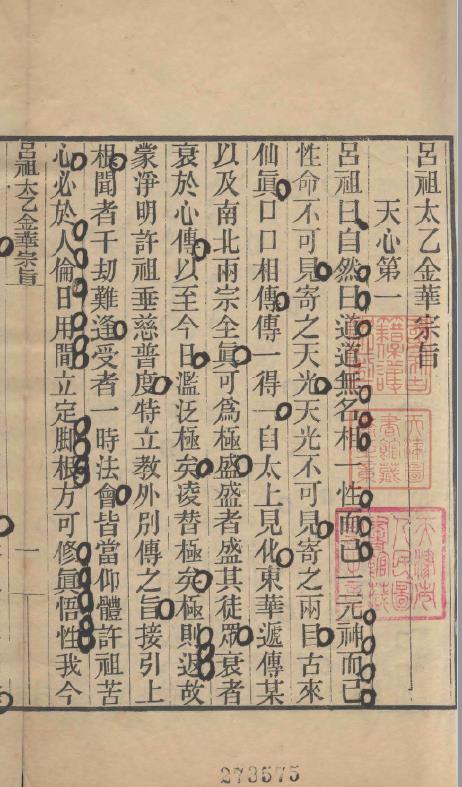 呂祖太乙金華宗旨
天心第一
呂祖曰自然曰道道無名相一性而已一元神而已
性命不可見寄之天光天光不可見寄之兩目古來
仙眞口口相傳傳一得一自太上見化東華遞傳某
以及南北兩宗全眞可爲極盛盛者盛其徒衆衰者
衰於心傳以至今日濫泛極矣凌替極矣極則返故
蒙淨明許祖垂慈普度特立教外別傳之旨接引上
根聞者千劫難逢受者一時法會皆當仰體許祖苦
心必於人倫日用間立定脚根方可修眞悟性我今
呂祖太乙金華宗旨
一
273575